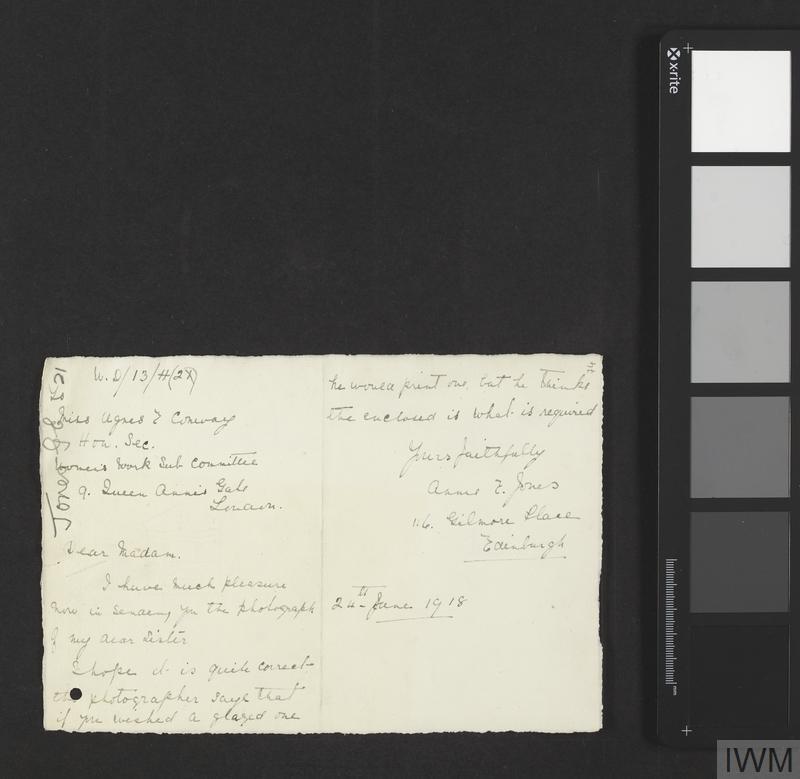 W.D/13/H(2X)
Miss Agnes E Conway
Hon. Sec.
Women's Work Sub Committee
9. Queen Annes Gate
London.
Dear Madam.
I have much pleasure
now in sending you the photograph
of my dear Sister
I hope it is quite correct
the photographer says that
if you wished a glazed one
he would print one, but he thinks
the enclosed is what is required
Yours faithfully
Annie E. Jones
Gilmore Place
Edinburgh
24th June 1918
Jones
x·rite
mm
IWM